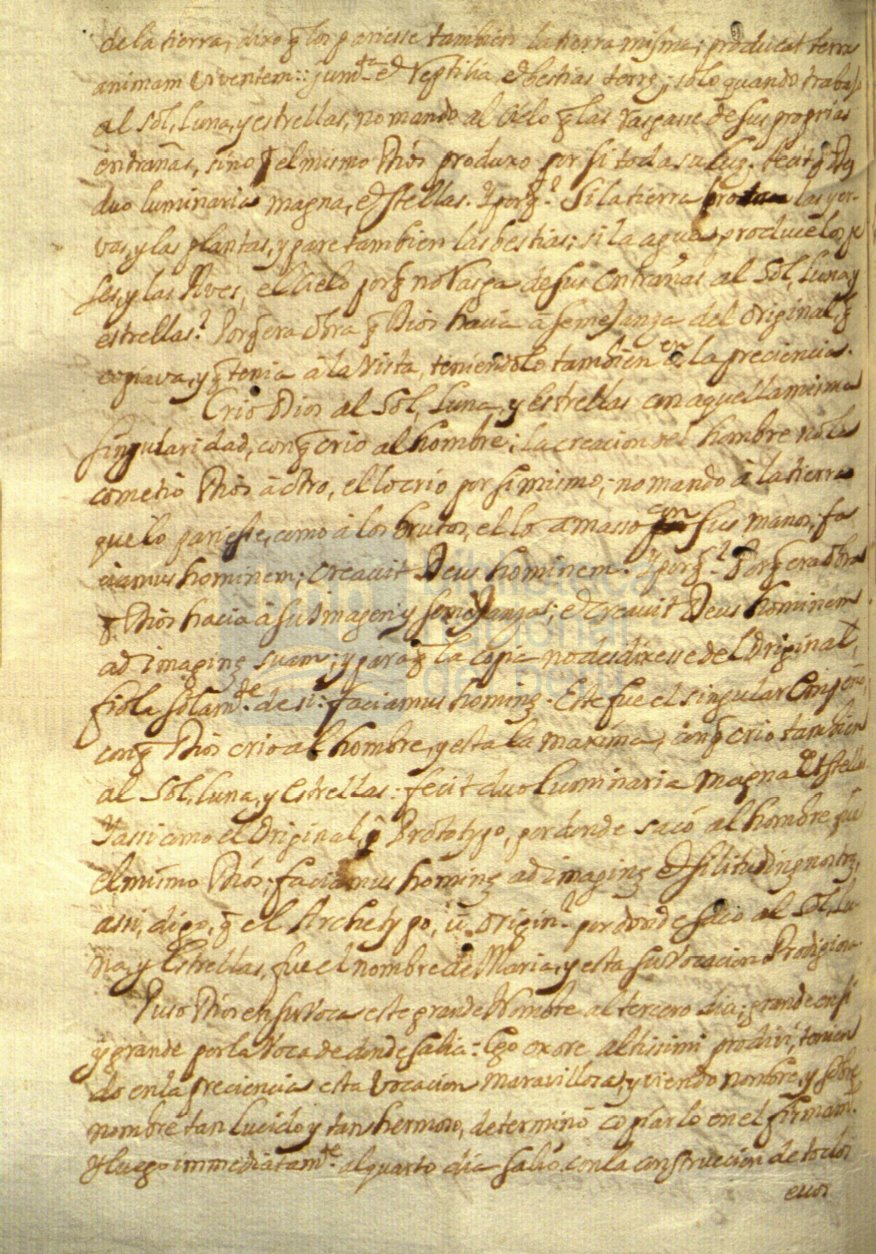 de la tierra, dixo q̃ los pariesse tambien la tierra misma; producat terra
animam viventem:: jumta et reptilia, et bestias terrę; solo quando trabajo
al sol, luna, y estrellas, no mando al Cielo q̃ las rasgasse de sus proprias
entrañas, sino q̃ el mismo Dios produxo por si toda su luz. fecit q̃ Ds
duo luminaria magna, et stellas. Y porq̃? Si la tierra las yer-
vas, y las plantas, y pare tambien las bestias; si la agua produce los pe
ses, y las Aves, el Cielo porq̃ no rasga de sus entrañas al Sol, Luna, y
estrellas? Porq̃ era obra q̃ Dios hacia a semejanza del original, q̃
copiava, y q̃ tenia à la vista, teniendolo tambien en la preciencia.
Crio Dios al Sol, Luna, y Estrellas con aquella misma
singularidad, con q̃ crio al hombre; la creacion del hombre no la
cometió Dios à otro, el lo crio por si mismo; no mando à la tierra
que lo pariesse, como à los brutos, el lo amasso con sus manos; fa
ciamus hominem; creavit Deus hominem. Y porq̃? Porq̃ era obra
q̃ Dios hacia à su imagen y semejanza; et creavit Deus hominem
ad imaginę suam; y para q̃ la copia no desdixesse del Original,
fiola solamte. de si: faciamus hominę. Este fue el singular
con q̃ Dios crio al hombre, y esta la maxima, con q̃ crio tambien
al Sol, Luna, y Estrellas: fecit duo luminaria magna et stellas
Y assi como el Original, q̃ Prototypo, por donde sacó al hombre, fue
el mismo Dios: faciamus hominę ad imaginę et nostrę,
assi, digo, q̃ el Archetypo, ù origin.l por donde saco al Sol, Lu-
na, y Estrellas, fue el nombre de Maria, y esta su vocacion Prodigiosa.
Puso Dios en su voca este grande Nombre al tercero dia; grande en si
y grande por la voca de donde salia: Ego ex ore altissimi prodivi, tenien
do en la preciencia esta vocacion maravillosa; y viendo nombre, y sobre
nombre tan lucido y tan hermoso, determinó copiarlo en el firmam.to
Y luego immediatamte. al quarto dia salió con la construccion de todos
ellos